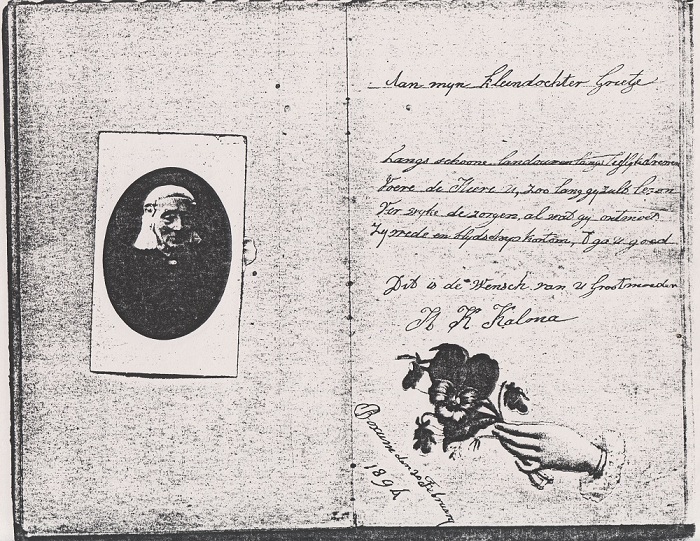 Aan myn kleindochter Grietje
Langs schoone landouwen langs lieflyke dreven
Voere de Heere u, zoo lang gy zult leven
Ver wyke de zorgen, al wat gy ontmoet
Zy vrede en blydschap kortom, 't ga u goed
Dit is de Wensch van u Grootmoeder
K Kalma
Boxum den 20 February
1894